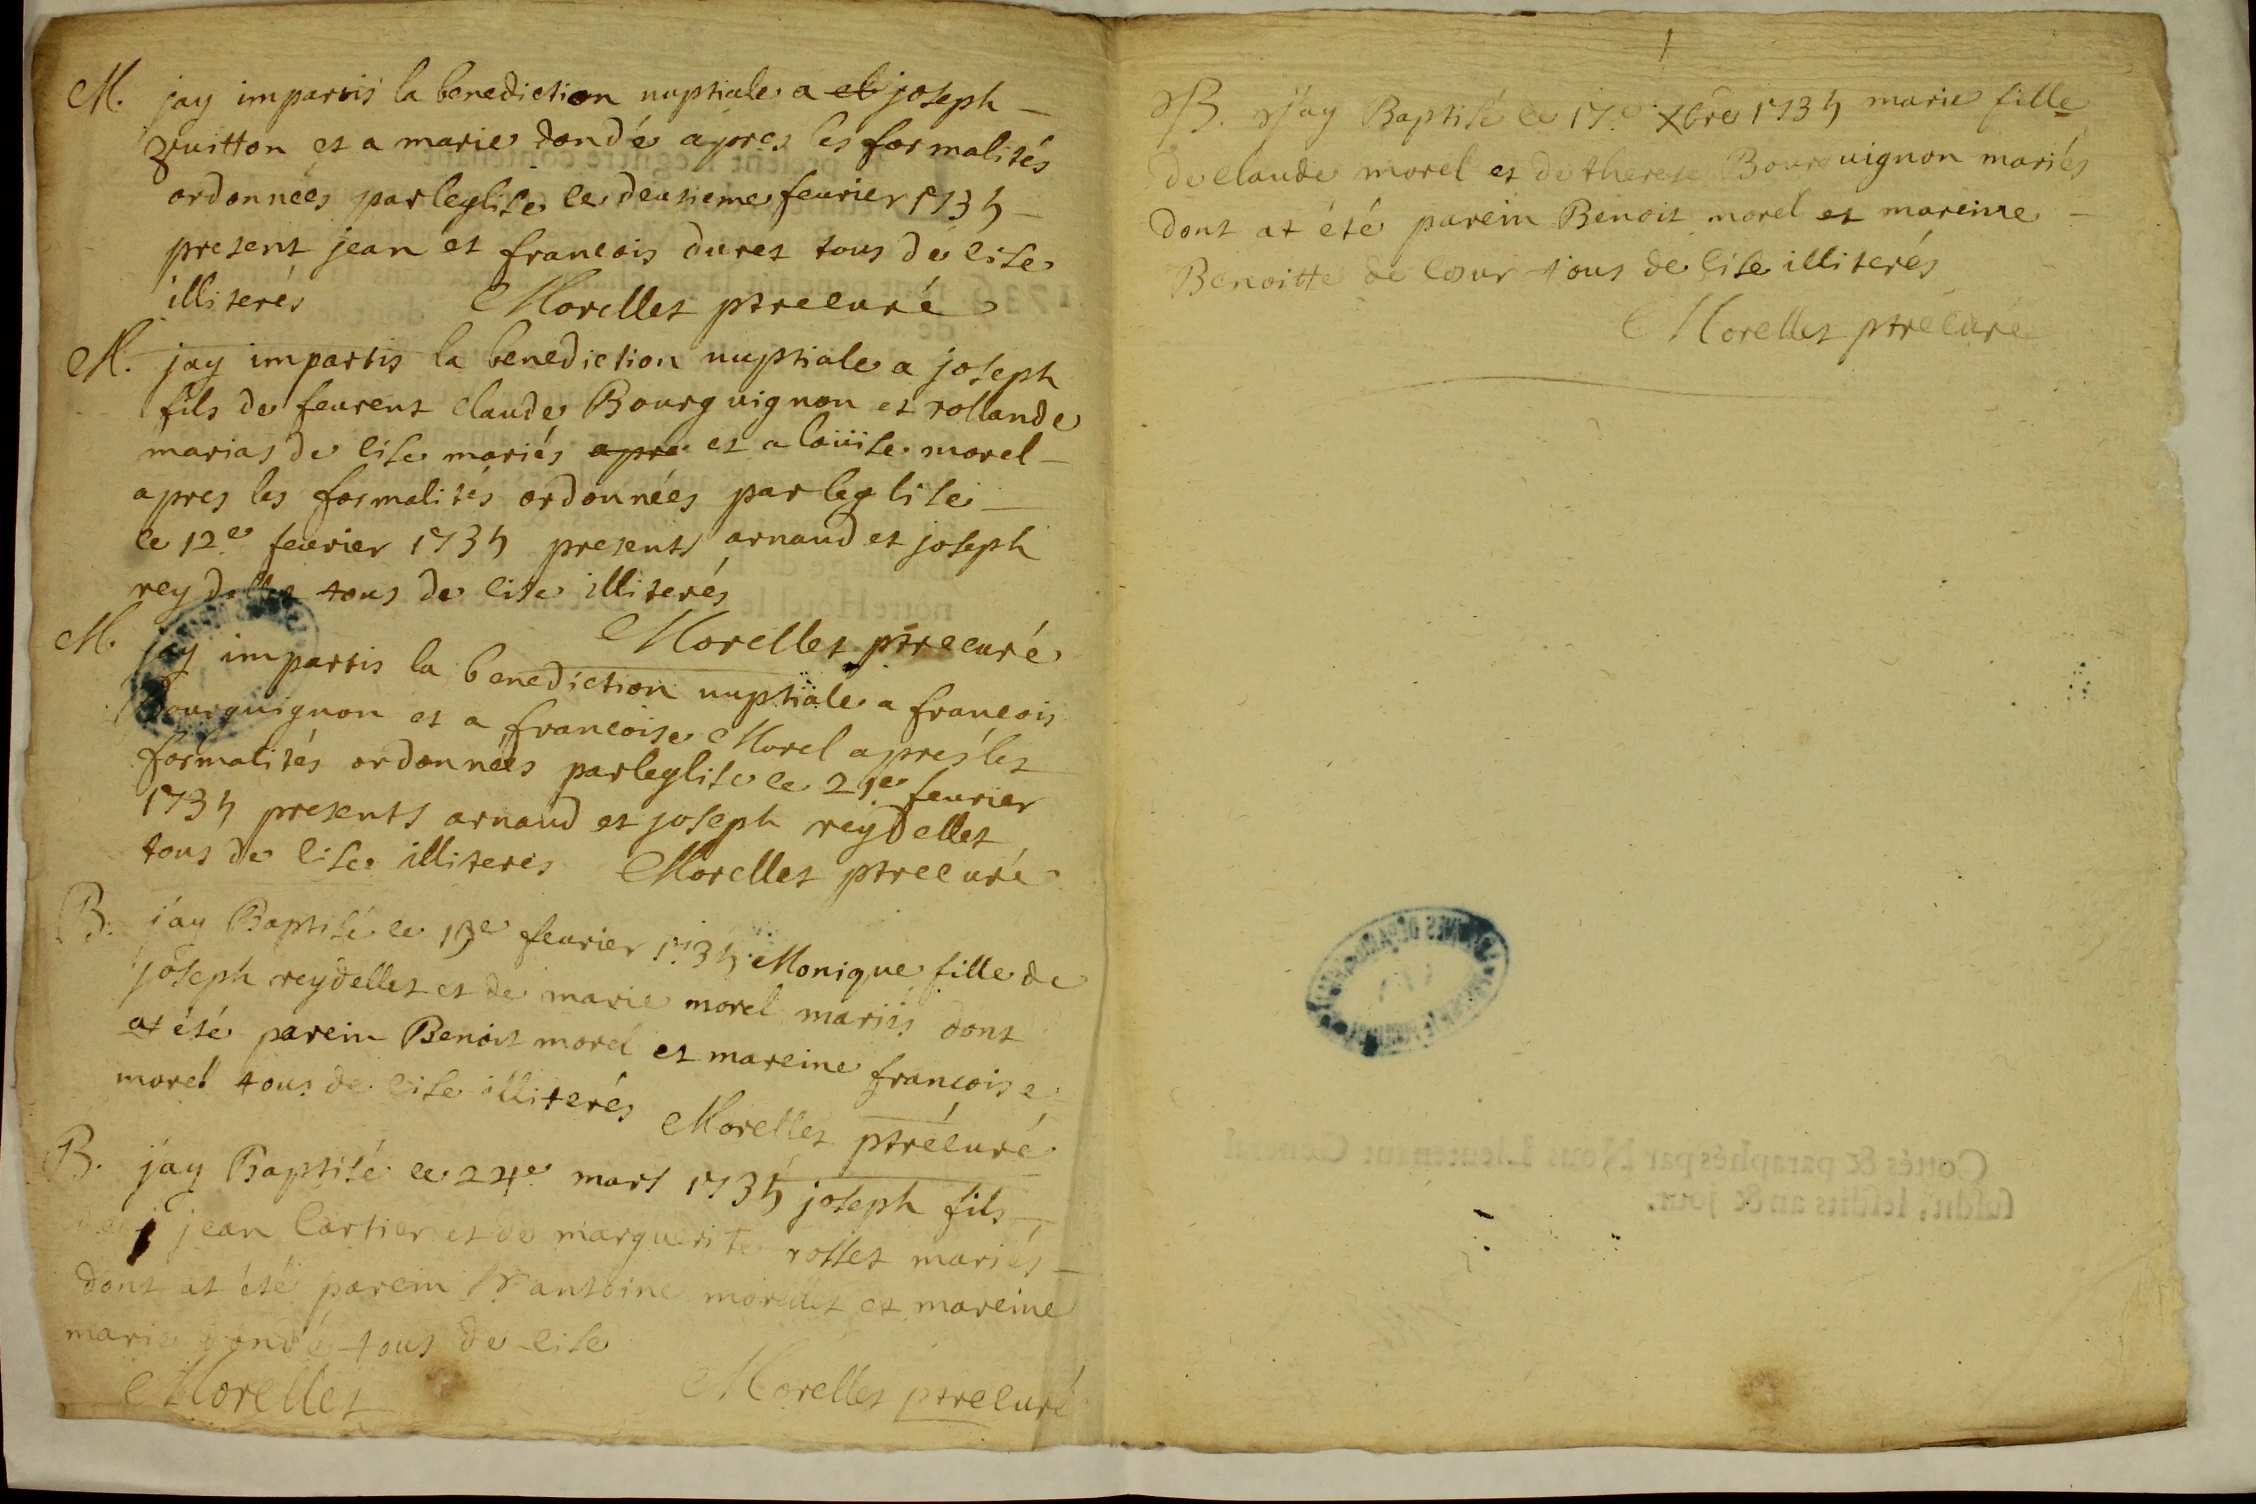 M. jay impartis la benediction nuptiale a et joseph
guitton et a marie dondé apres les formalités
ordonnées par leglise le deusieme feurier 1735
present jean et francois duret tous de lise
illiterés Morellet ptre curé
M. jay impartis la benediction nuptiale a joseph
fils de feurent claude Bourguignon et rollande
marias de lise mariés apre et a loüise morel
apres les formalités ordonnées par leglise
le 12e feurier 1735 presents arnaud et joseph
reydellet tous de lise illiterés
Morellet ptre curé
M. jay impartis la benediction nuptiale a francois
Bourguignon et a francoise Morel apres les
formalités ordonnées par leglise le 21e feurier
1735 presents arnaud et joseph reydellet
tous de lise illiterés Morellet ptre curé
B. jay Baptisé le feurier 1735 Monique fille de
joseph reydellet et de marie morel mariés dont
at été parein Benoit morel et mareine francoise
morel tous de lise illiterés Morellet ptre curé
B. jay Baptisé le 24e mars 1735 joseph fils
de jean Cartier et de marguerite rollet mariés
dont at été parein Sr antoine morellet et mareine
marie dondé tous de lise
Morellet Morellet ptre curé
1
B. jay Baptisé le 17e Xbre 1735 marie fille
de claude morel et de therese Bourguignon mariés
dont at été parein Benoit morel et mareine
Benoitte de lour tous de lise illiterés
Morellet ptre curé
Cottés & paraphés par Nous Lieutenant General
susdit, lesdits an & jour.